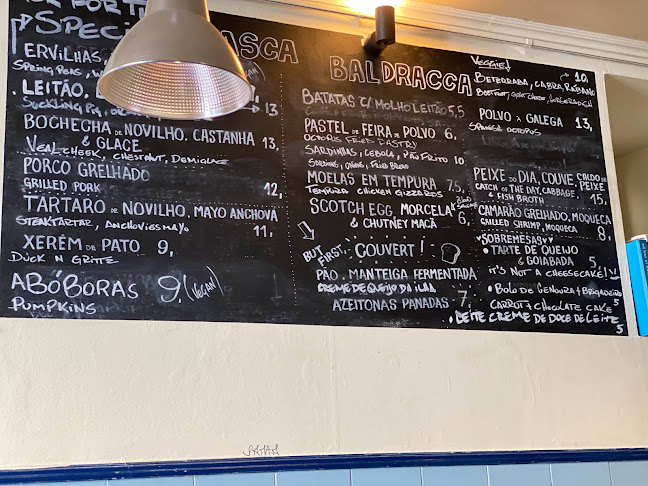 SPECI
ERVILHAS,
SPRING PEAS, W
LEITÃO,
SUCKLING PIG, 13
BOCHECHA DE NOVILHO, CASTANHA
& GLACE 13,
VEAL CHEEK, CHESTNUT, DEMIGLACE
PORCO GRELHADO
GRILLED PORK 12,
TARTARO DE NOVILHO, MAYO ANCHOVA
STEAKTARTAR, ANCHOVIES MAYO 11,
XERÉM DE PATO 9,
DUCK N GRITS
ABÓBORAS 9, (VEGAN)
PUMPKINS
ASCA BALDRACCA
BATATAS C/ MOLHO LEITÃO 5,5
PASTEL DE FEIRA DE POLVO 6,
OCTOPUS FRIED PASTRY
SARDINHAS, CEBOLA, PÃO FRITO 10
SARDINES, ONIONS, FRIED BREAD
MOELAS EM TEMPURA 7,5,
TEMPURA CHICKEN GIZZARDS
SCOTCH EGG, MORCELA
& CHUTNEY MAÇÃ 6,
BUT FIRST,
COUVERT!
PÃO, MANTEIGA FERMENTADA
CREME DE QUEIJO DA ILHA
AZEITONAS PANADAS 7,
VEGGIE! 10,
BETERRABA, CABRA, RÁBANO
BEETROOT, GOAT CHEESE, HORSERADISH
POLVO À GALEGA 13,
SPANISH OCTOPUS
PEIXE DO DIA, COUVE, CALDO DE PEIXE
CATCH OF THE DAY, CABBAGE,
& FISH BROTH 15,
CAMARÃO GRELHADO, MOQUECA
GRILLED SHRIMP, MOQUECA 8,
SOBREMESAS
• TARTE DE QUEIJO
& GOIABADA 5,
IT'S NOT A CHEESECAKE!
• BOLO DE CENOURA + BRIGADEIRO
CARROT + CHOCOLATE CAKE 5
• LEITE CREME DE DOCE DE LEITE 5